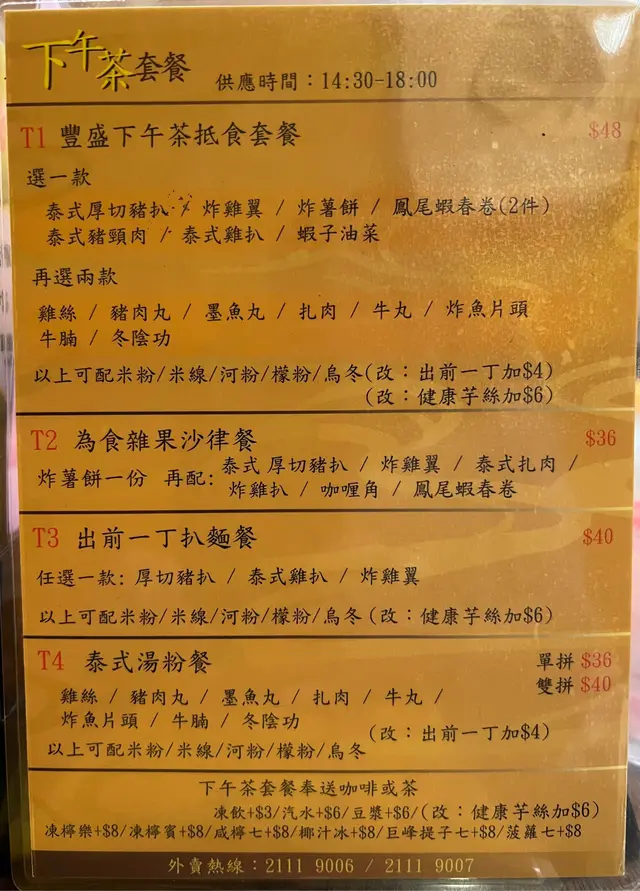 下午茶套餐 供應時間：14:30-18:00
T1 豐盛下午茶抵食套餐 $48
選一款
泰式厚切豬扒 / 炸雞翼 / 炸薯餅 / 鳳尾蝦春卷(2件)
泰式豬頸肉 / 泰式雞扒 / 蝦子油菜
再選兩款
雞絲 / 豬肉丸 / 墨魚丸 / 扎肉 / 牛丸 / 炸魚片頭
牛腩 / 冬陰功
以上可配米粉/米線/河粉/檬粉/烏冬(改：出前一丁加$4)
(改：健康芋絲加$6)
T2 為食雜果沙律餐 $36
炸薯餅一份 再配: 泰式 厚切豬扒 / 炸雞翼 / 泰式扎肉 /
炸雞扒 / 咖喱角 / 鳳尾蝦春卷
T3 出前一丁扒麵餐 $40
任選一款: 厚切豬扒 / 泰式雞扒 / 炸雞翼
以上可配米粉/米線/河粉/檬粉/烏冬 (改：健康芋絲加$6)
T4 泰式湯粉餐 單拼 $36
雙拼 $40
雞絲 / 豬肉丸 / 墨魚丸 / 扎肉 / 牛丸 /
炸魚片頭 / 牛腩 / 冬陰功
(改：出前一丁加$4)
以上可配米粉/米線/河粉/檬粉/烏冬
下午茶套餐奉送咖啡或茶
凍飲+$3/汽水+$6/豆漿+$6/(改：健康芋絲加$6)
凍檸樂+$8/凍檸賓+$8/咸檸七+$8/椰汁冰+$8/巨峰提子七+$8/菠蘿七+$8
外賣熱線：2111 9006 / 2111 9007